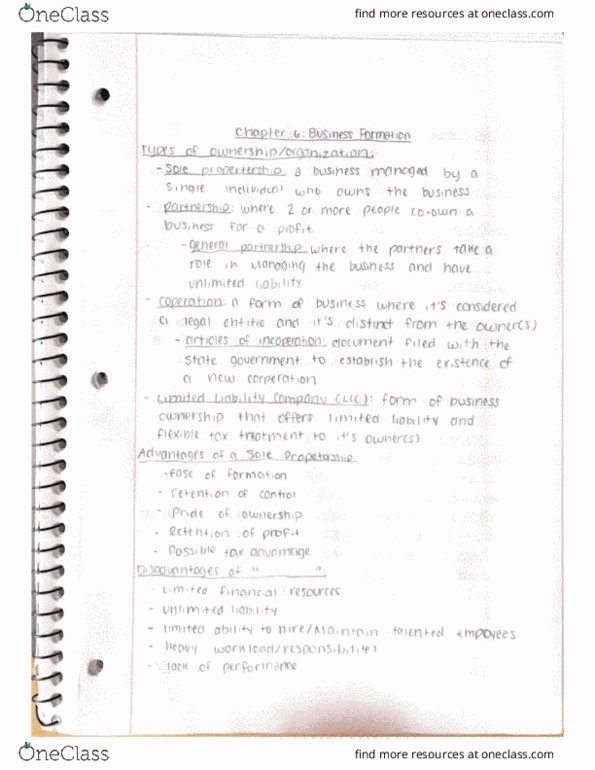 OneClass
find more resources at oneclass.com
Chapter 6: Business Formation
Types of ownership/organization:
- Sole propertership a business managed by a
single individual who owns the business
- partnership: where 2 or more people co-own a
business for a profit
- general partnership where the partners take a
role in managing the business and have
unlimited liability
- coperation: a form of business where it's considered
a legal entitie and it's distinct from the owner(s)
- articles of incoperation: document filed with the
state government to establish the existence of
a new corperation
- Limited Liability Company (LLC): form of business
ownership that offers limited liability and
flexible tax treatment to it's owner(s)
Advantages of a Sole Propetorship
- ease of formation
- retention of control
- Pride of ownership
- Retention of profit
- Possible tax advantage
Disadvantages of " "
- Limited financial resources
- unlimited liability
- limited ability to hire/maintain talented empoyees
- heavy workload/responsibilites
- lack of performance
OneClass
find more resources at oneclass.com